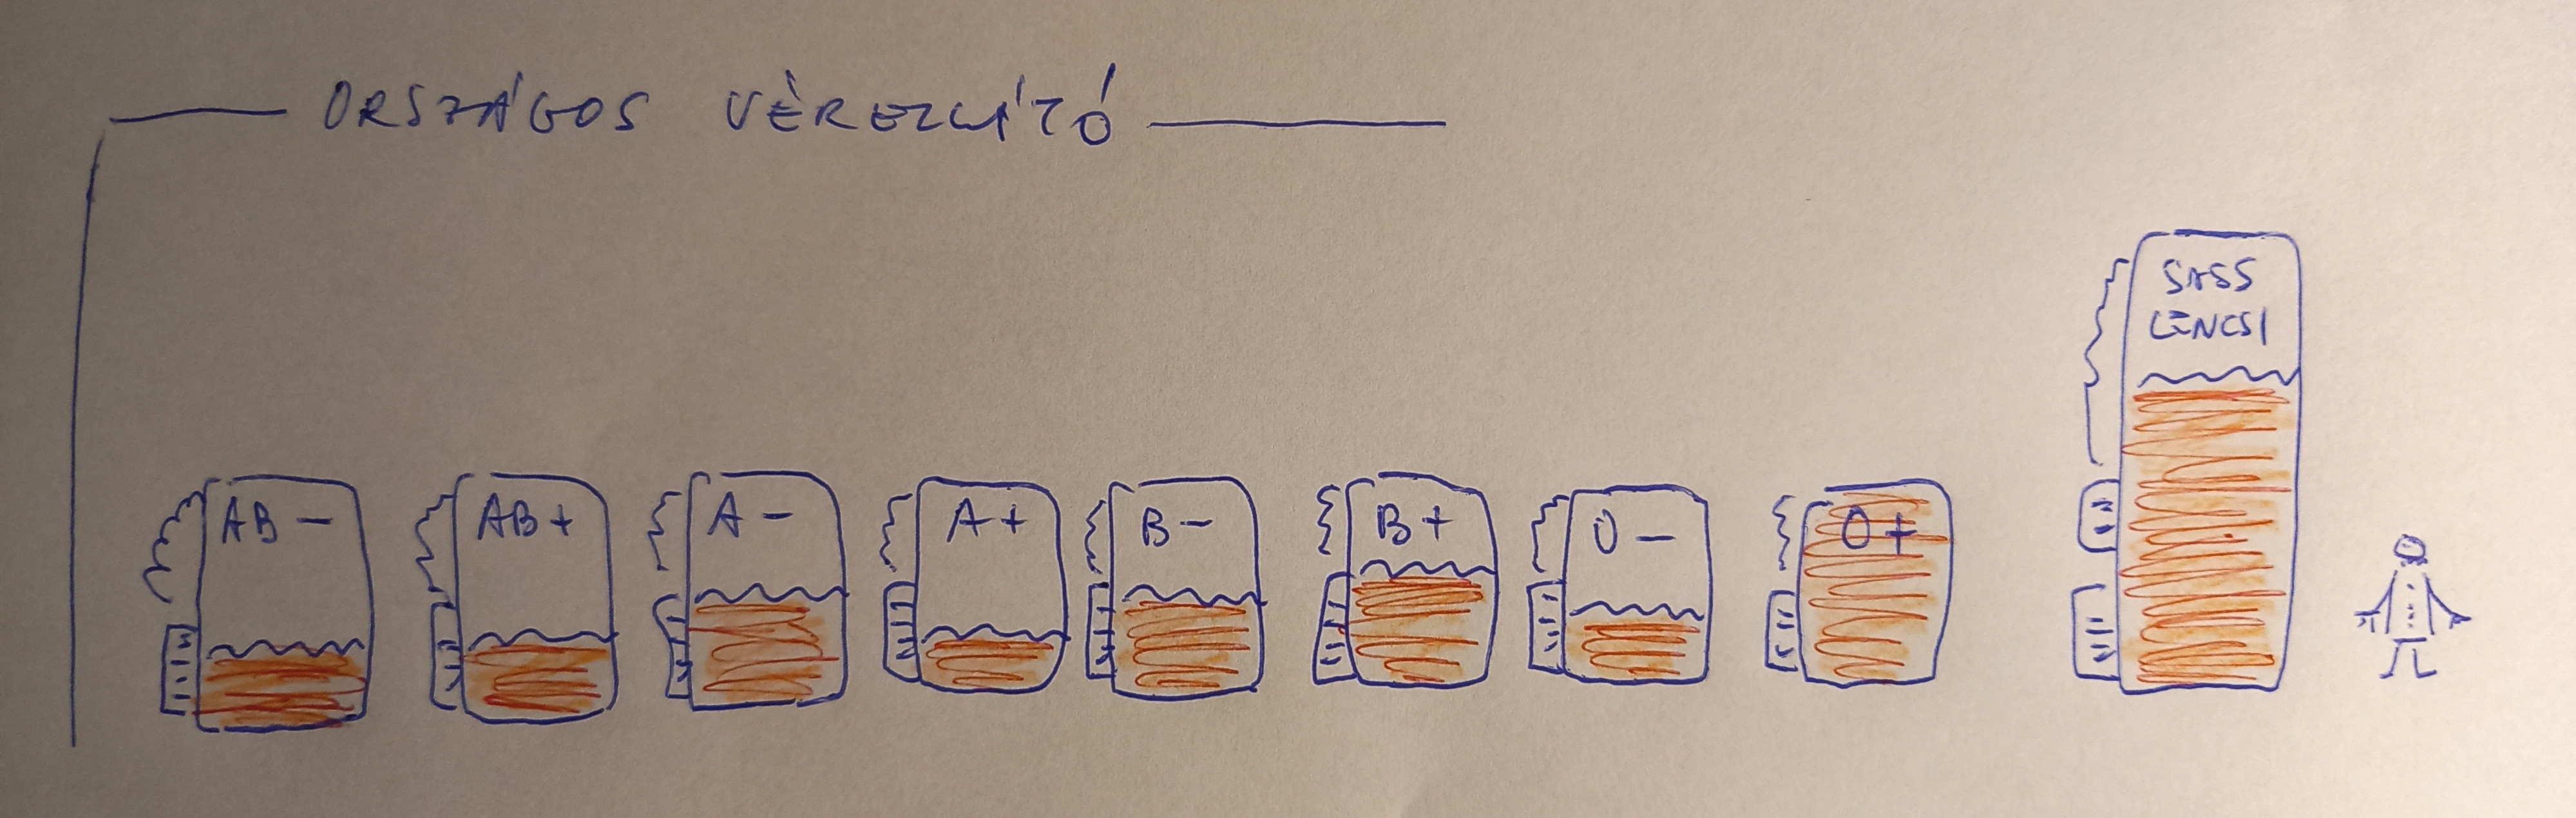 ORSZÁGOS VÉRELLÁTÓ
AB -
AB +
A -
A +
B -
B +
0 -
0 +
SASS
LENCSI